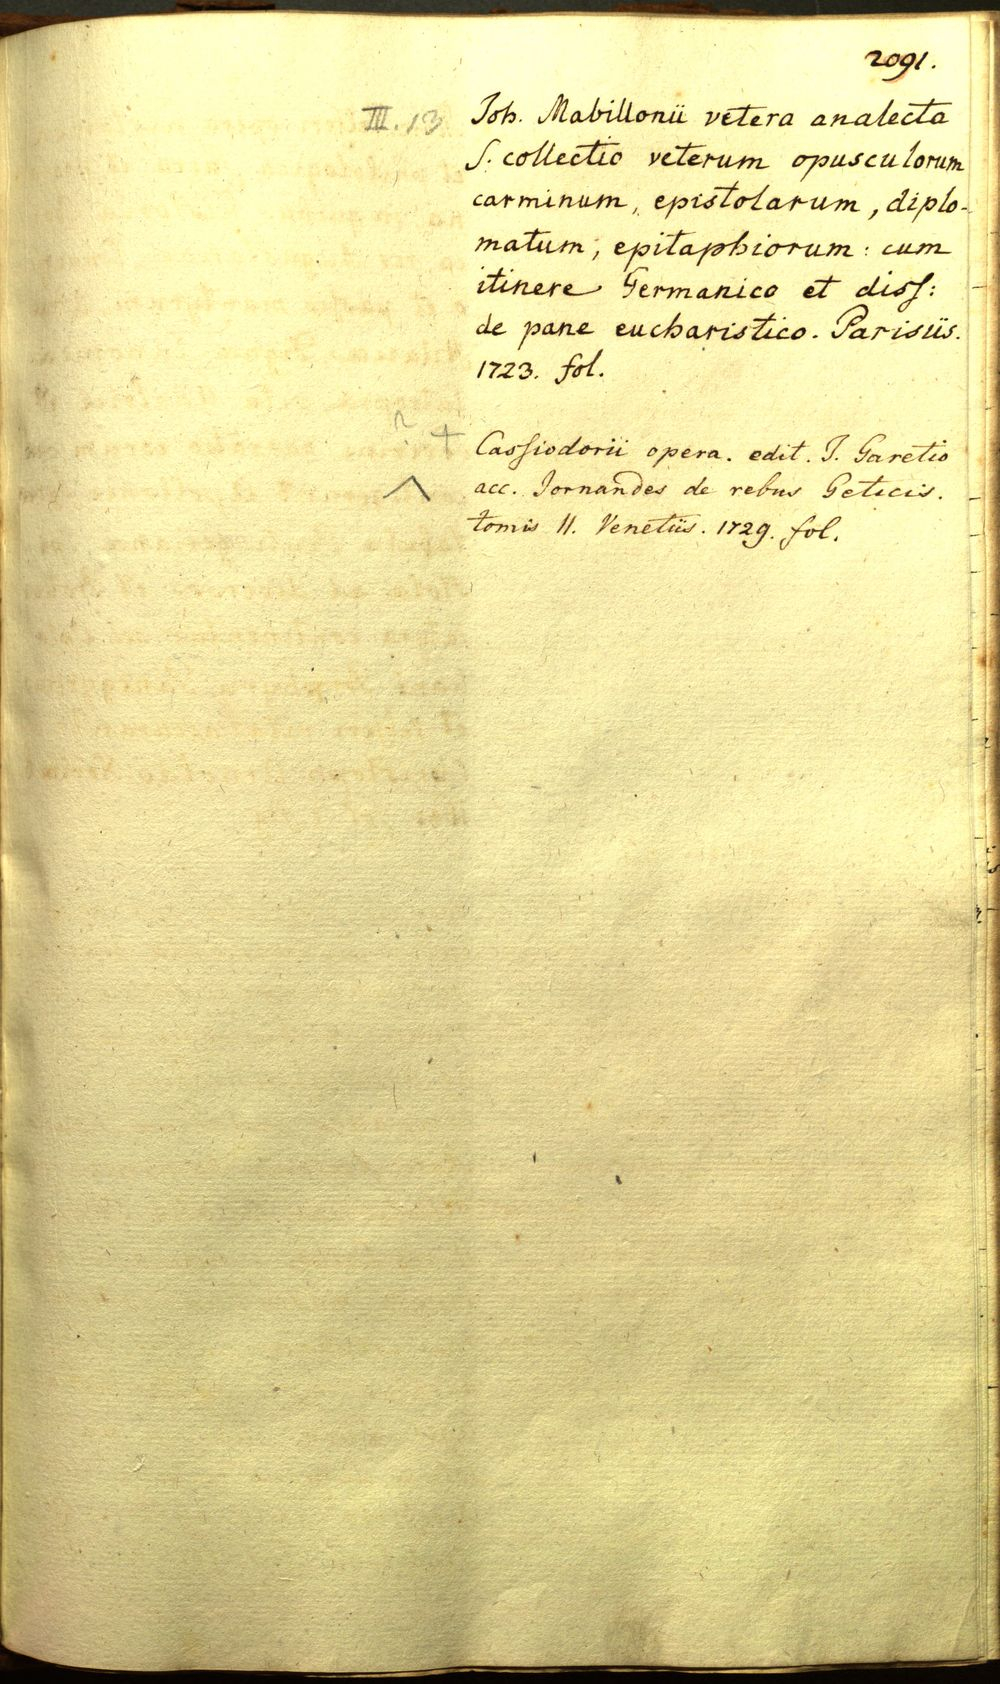 2091.
III. 13 Joh. Mabillonii vetera analecta
S. collectio veterum opusculorum
carminum, epistolarum, diplo-
matum, epitaphiorum: cum
itinere Germanico et diss:
de pane eucharistico. Parisiis.
1723. fol.
+ Cassiodorii opera. edit. J. Garetio
acc. Jornandes de rebus Geticis.
tomis II. Venetiis. 1729. fol.